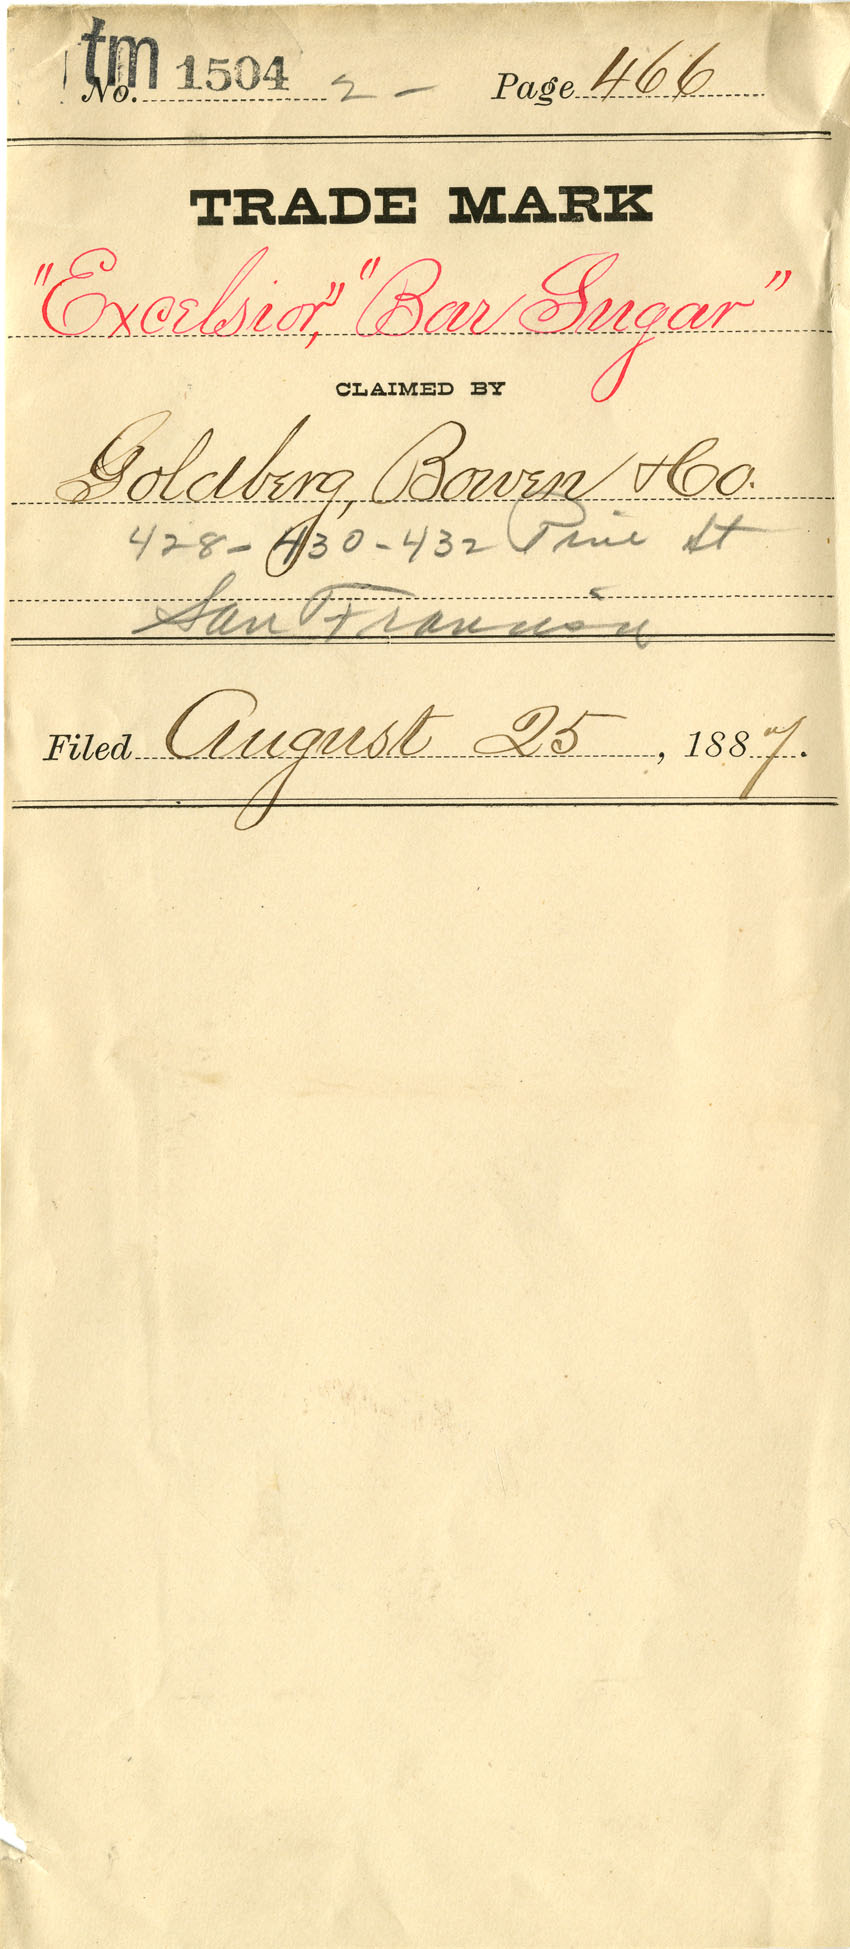 tm
No. 1504 2 - Page 466
TRADE MARK
"Excelsior," "Bar Sugar"
CLAIMED BY
Goldberg, Bowen & Co.
428-430-432 Pine St
San Francisco
Filed August 25, 1887.